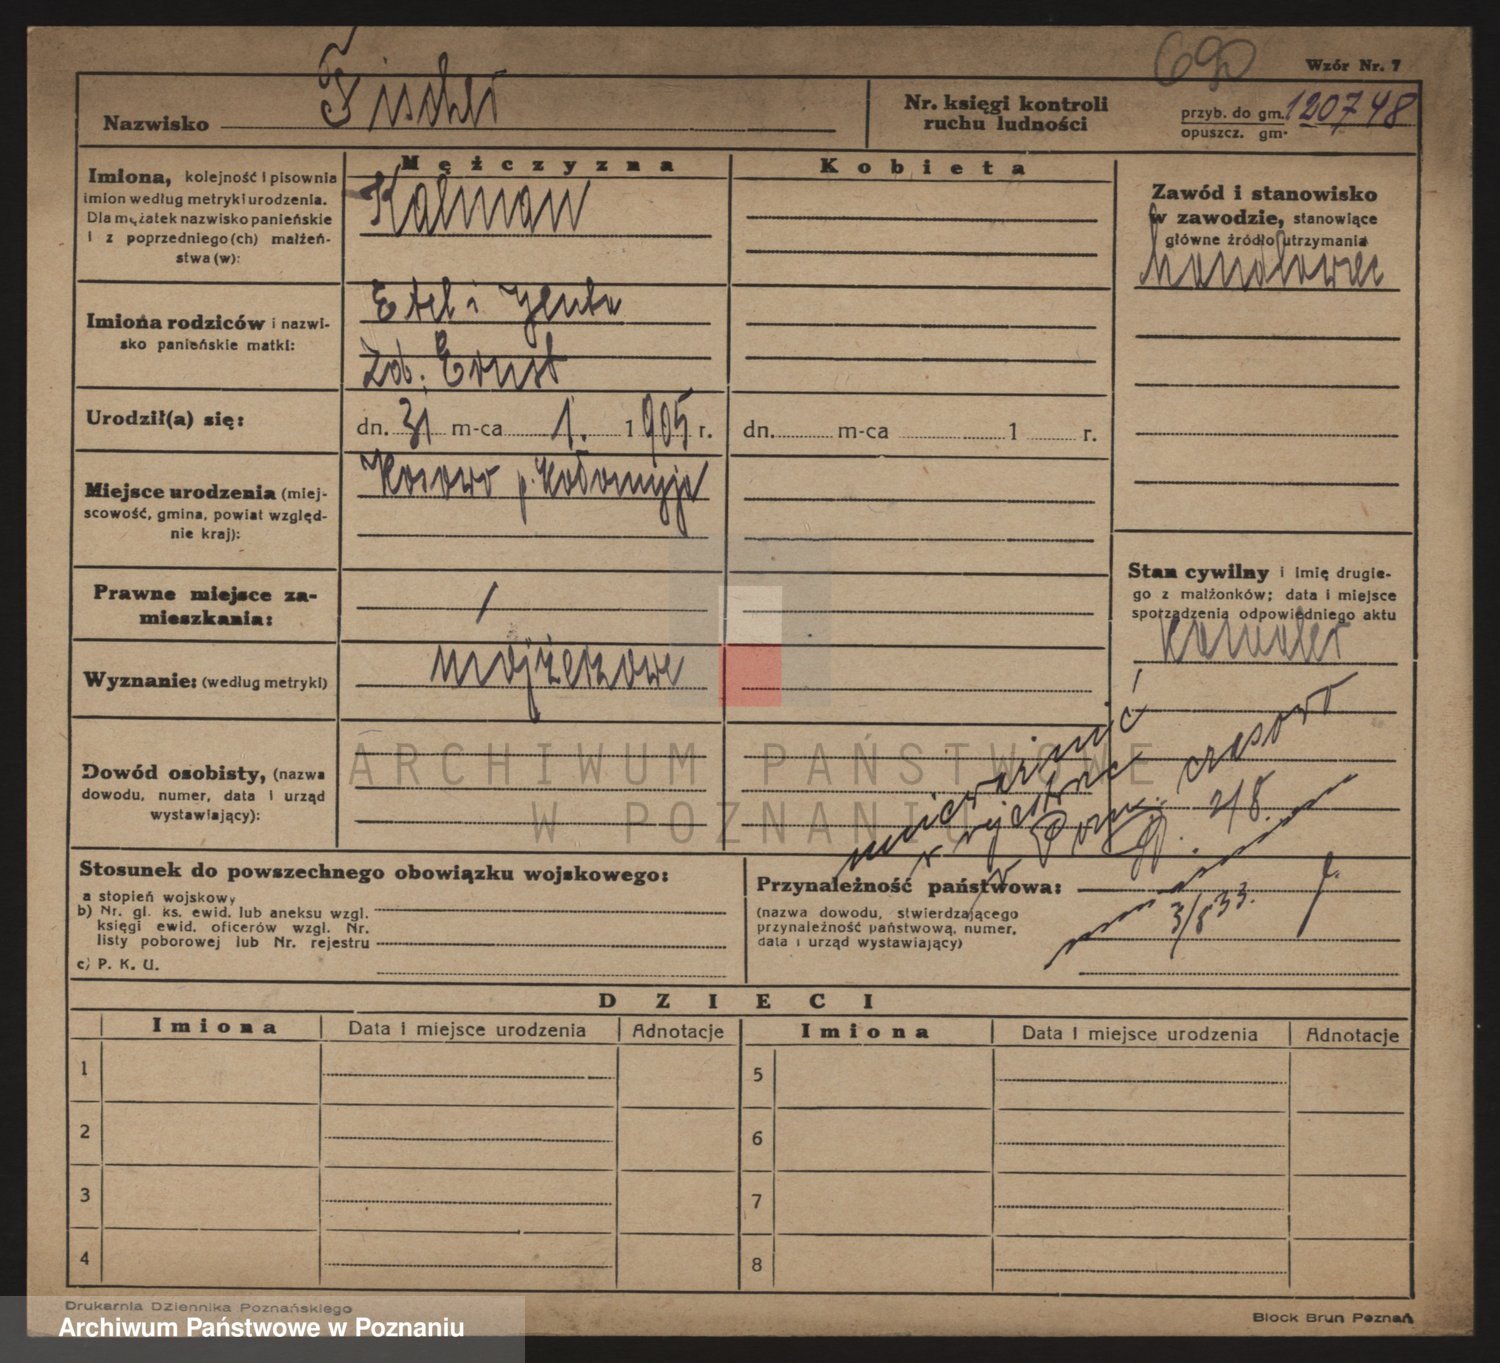 690
Wzór Nr. 7
Nazwisko Fischer
Nr. księgi kontroli
ruchu ludności
przyb. do gm. 120748
opuszcz. gm.
Mężczyzna
Kobieta
Imiona, kolejność i pisownia
imion według metryki urodzenia.
Dla mężatek nazwisko panieńskie
i z poprzedniego(ch) małżeń-
stwa(w):
Kalman
Zawód i stanowisko
w zawodzie, stanowiące
główne źródło utrzymania
handlowiec
Imiona rodziców i nazwi-
sko panieńskie matki:
Etel i Jenta
Zd. Ernst
Urodził(a) się:
dn. 31 m-ca 1. 1905 r.
dn. m-ca 1 r.
Miejsce urodzenia (miej-
scowość, gmina, powiat względ-
nie kraj):
Kosowo p. Kołomyja
Prawne miejsce za-
mieszkania:
/
Stan cywilny i imię drugie-
go z małżonków; data i miejsce
sporządzenia odpowiedniego aktu
kawaler
Wyznanie: (według metryki)
mojżeszowe
Dowód osobisty, (nazwa
dowodu, numer, data i urząd
wystawiający):
unieważnić
w rejestrze
w Pozn. czasowo
2/8.
3/8 33.
ARCHIWUM PAŃSTWOWE
W POZNANIU
Stosunek do powszechnego obowiązku wojskowego:
a stopień wojskowy
b) Nr. gl. ks. ewid. lub aneksu wzgl.
księgi ewid. oficerów wzgl. Nr.
listy poborowej lub Nr. rejestru
c) P. K. U.
Przynależność państwowa:
(nazwa dowodu, stwierdzającego
przynależność państwową, numer,
data i urząd wystawiający)
DZIECI
Imiona Data i miejsce urodzenia Adnotacje Imiona Data i miejsce urodzenia Adnotacje
1 5
2 6
3 7
4 8
Drukarnia Dziennika Poznańskiego
Block Brun Poznań
Archiwum Państwowe w Poznaniu